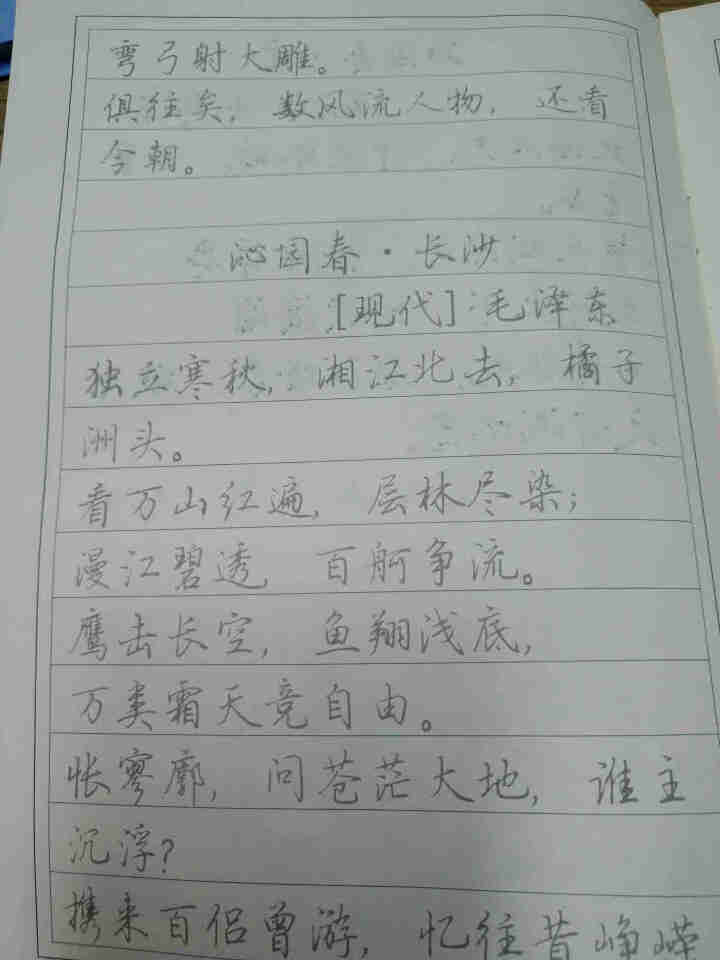 弯弓射大雕。
俱往矣，数风流人物，还看
今朝。
沁园春·长沙
[现代]毛泽东
独立寒秋，湘江北去，橘子
洲头。
看万山红遍，层林尽染；
漫江碧透，百舸争流。
鹰击长空，鱼翔浅底，
万类霜天竞自由。
怅寥廓，问苍茫大地，谁主
沉浮？
携来百侣曾游，忆往昔峥嵘